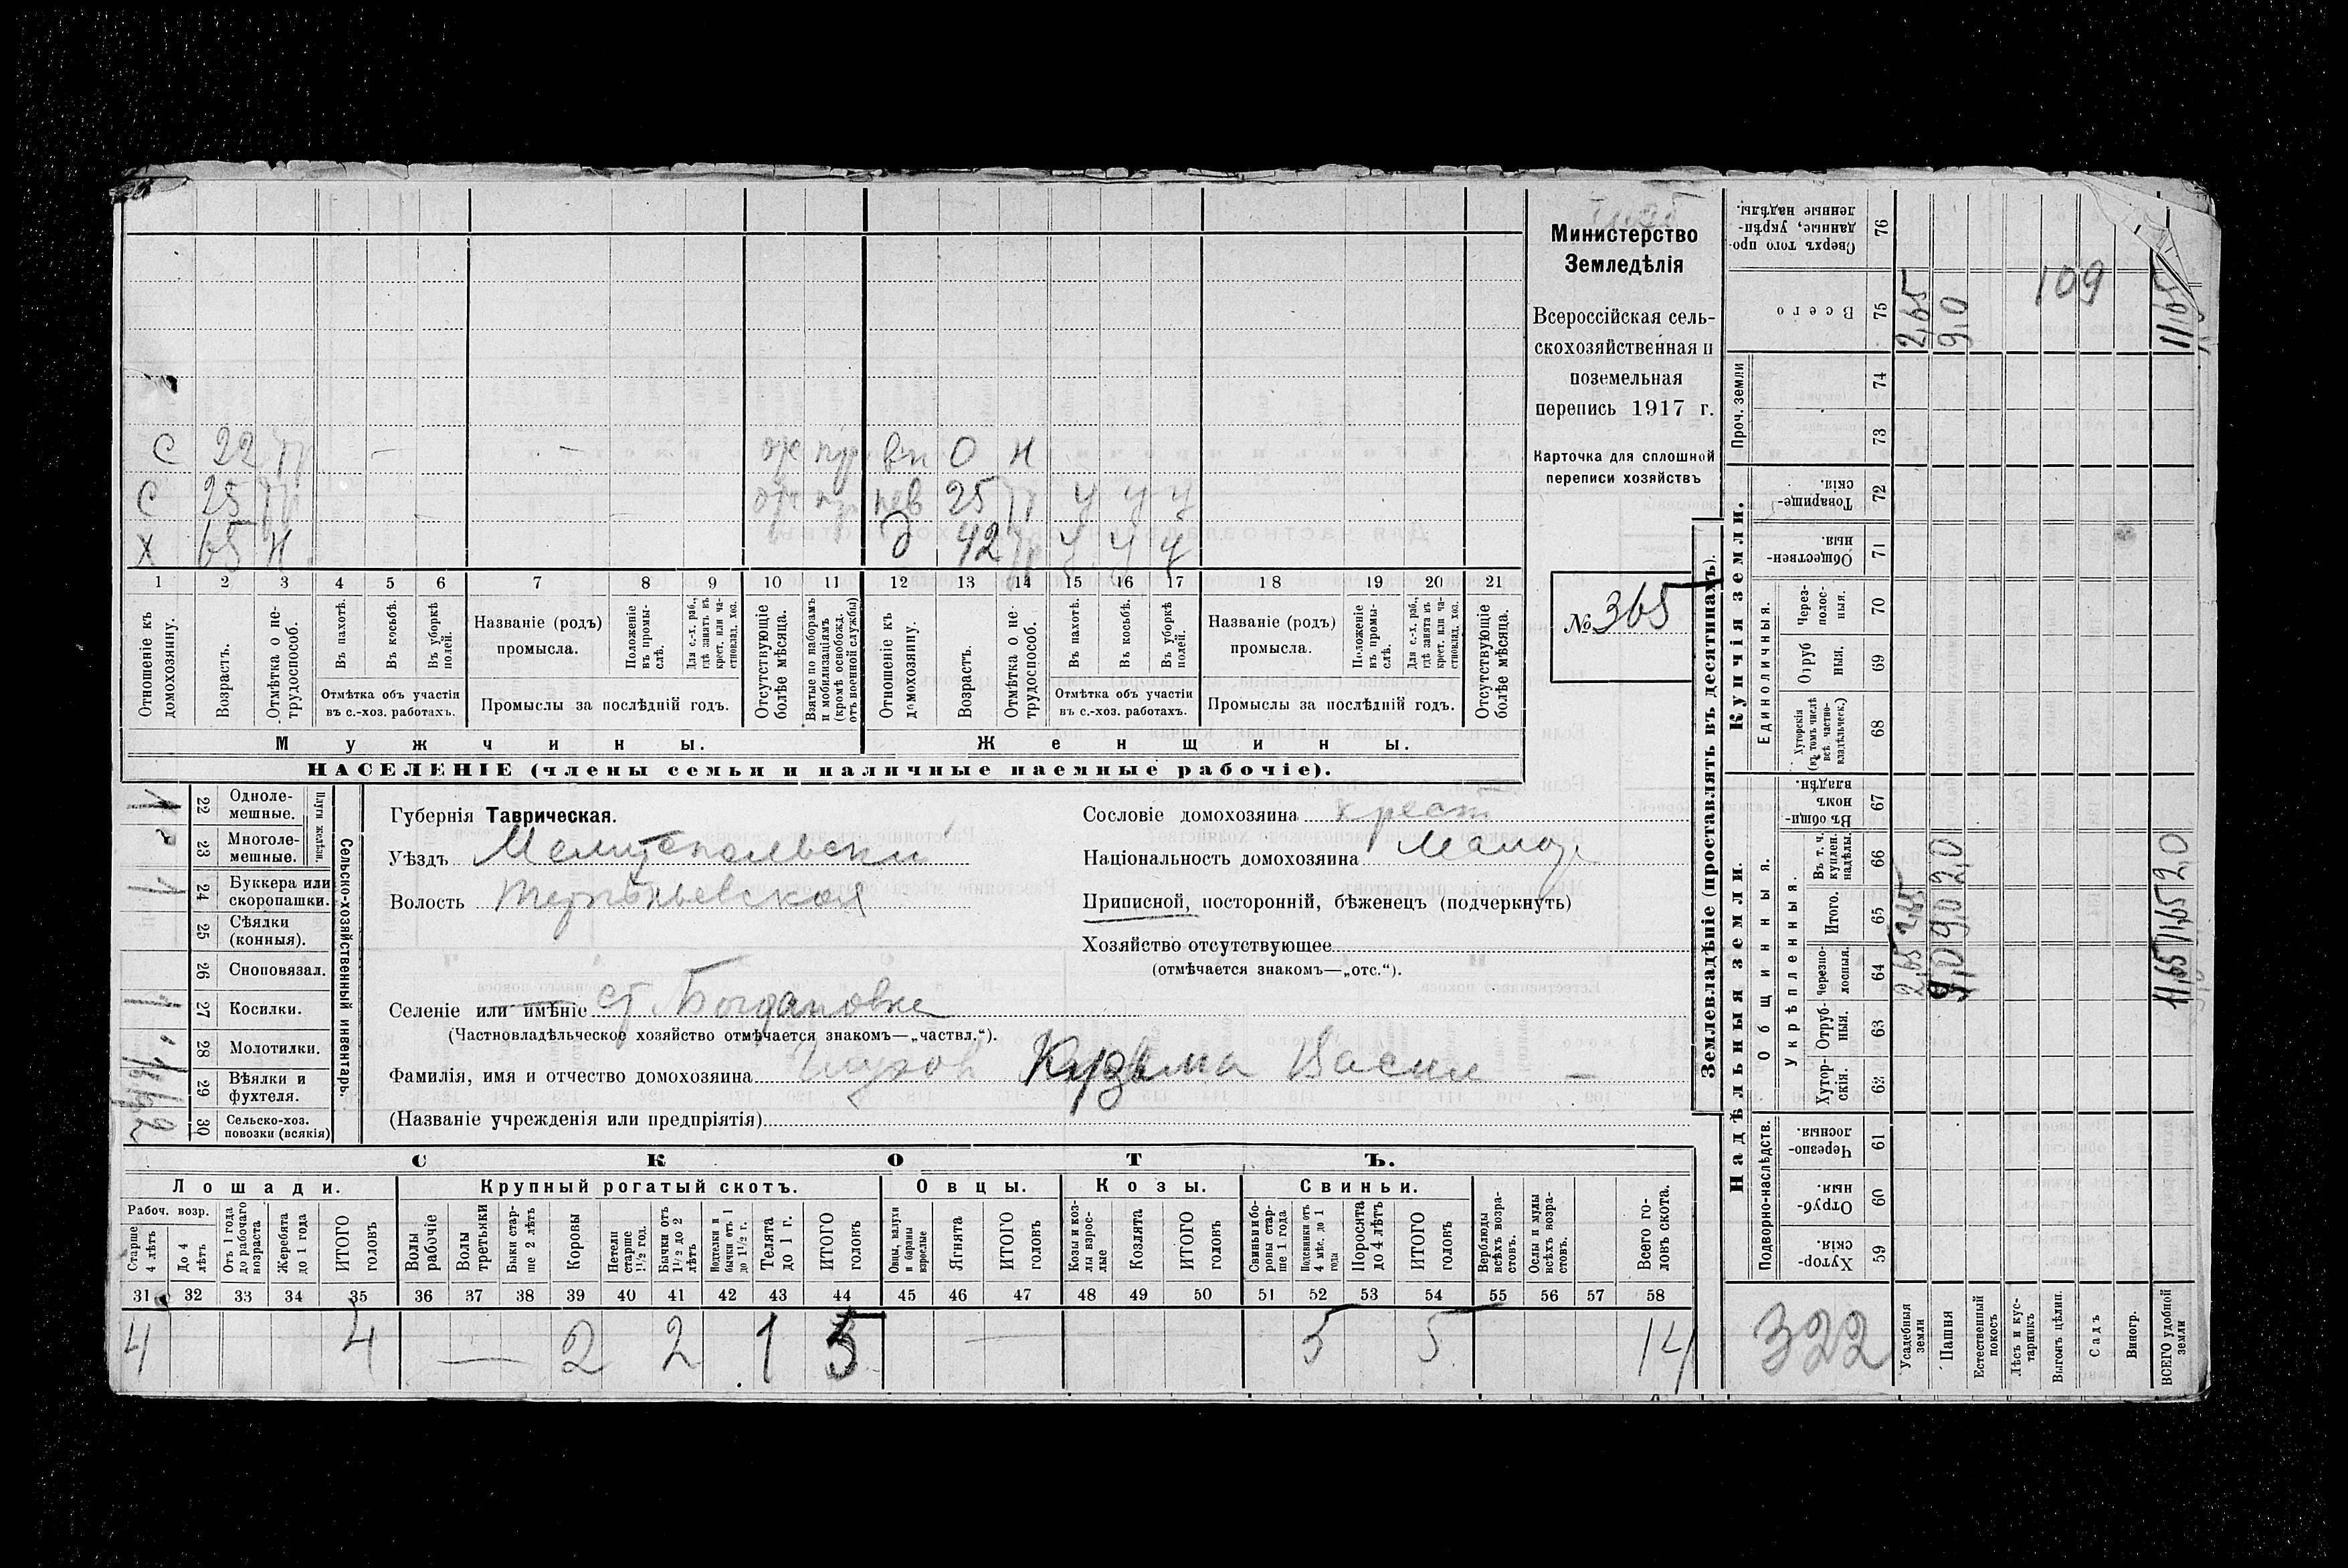 С 22 тр — — от пр вн О н
С 25 тр — — от пр нев 25 тр у у у
Х 65 н Д 42 тр у у у
1 2 3 4 5 6 7 8 9 10 11 12 13 14 15 16 17 18 19 20 21
Отношеніе къ домохозяину.
Возрастъ.
Отмѣтка о не-трудоспособ.
Въ пахотѣ.
Въ косьбѣ.
Въ уборкѣ полей.
Отмѣтка объ участіи въ с.-хоз. работахъ.
Названіе (родъ) промысла.
Положеніе въ промы-слѣ.
Для с.-х. раб., гдѣ занятъ въ крест. или ча-стновлад. хоз.
Промыслы за послѣдній годъ.
Отсутствующіе болѣе мѣсяца.
Взятые по наборамъ и мобилизаціямъ (кромѣ освобожд. отъ военной службы)
Отношеніе къ домохозяину.
Возрастъ.
Отмѣтка о не-трудоспособ.
Въ пахотѣ.
Въ косьбѣ.
Въ уборкѣ полей.
Отмѣтка объ участіи въ с.-хоз. работахъ.
Названіе (родъ) промысла.
Положеніе въ промы-слѣ.
Для с.-х. раб., гдѣ занята въ крест. или ча-стновлад. хоз.
Промыслы за послѣдній годъ.
Отсутствующіе болѣе мѣсяца.
Мужчины.
Женщины.
НАСЕЛЕНІЕ (члены семьи и наличные наемные рабочіе).
Министерство
Земледѣлія
Всероссійская сель-
скохозяйственная и
поземельная
перепись 1917 г.
Карточка для сплошной
переписи хозяйствъ
№ 365
22 Одноле-мешные.
23 Многоле-мешные.
Плуги желѣзн.
24 Буккера или скоропашки.
25 Сѣялки (конныя).
26 Сноповязал.
27 Косилки.
28 Молотилки.
29 Вѣялки и фухтеля.
30 Сельско-хоз. повозки (всякія)
Сельско-хозяйственный инвентарь.
Губернія Таврическая.
Уѣздъ Мелитопольски
Волость Терпѣньевская
Селеніе или имѣніе ст. Богдановка
(Частновладѣльческое хозяйство отмѣчается знакомъ—„частвл.“).
Фамилія, имя и отчество домохозяина Глухов Кузьма Васил —
(Названіе учрежденія или предпріятія)
Сословіе домохозяина крест
Національность домохозяина Малор
Приписной, посторонній, бѣженецъ (подчеркнуть)
Хозяйство отсутствующее
(отмѣчается знакомъ—„отс.“).
СКОТЪ.
Лошади. Крупный рогатый скотъ. Овцы. Козы. Свиньи.
Рабоч. возр.
Старше 4 лѣтъ
До 4 лѣтъ
Отъ 1 года до рабочаго возраста
Жеребята до 1 года
ИТОГО головъ
Волы рабочіе
Волы третьяки
Быки стар-ше 2 лѣтъ
Коровы
Нетели старше 1½ год.
Бычки отъ 1½ до 2 лѣтъ
Подтелки и бычки отъ 1 до 1½ г.
Телята до 1 г.
ИТОГО головъ
Овцы, валухи и бараны взрослые
Ягнята
ИТОГО головъ
Козы и коз-лы взрос-лые
Козлята
ИТОГО головъ
Свиньи и бо-ровы стар-ше 1 года
Подсвинки отъ 4 мѣс. до 1 года
Поросята до 4 лѣтъ
ИТОГО головъ
Верблюды всѣхъ возра-стовъ.
Ослы и мулы всѣхъ возра-стовъ.
Всего го-ловъ скота.
31 32 33 34 35 36 37 38 39 40 41 42 43 44 45 46 47 48 49 50 51 52 53 54 55 56 57 58
4 4 — 2 2 1 5 — 5 5 14
Землевладѣніе (проставлять въ десятинахъ).
Надѣльныя земли.
Купчія земли.
Подворно-наслѣдств.
Общинныя.
Укрѣпленныя.
Единоличныя.
Проч. земли
Хутор-скія. 59
Отруб-ныя. 60
Черезпо-лосныя. 61
Хутор-скія. 62
Отруб-ныя. 63
Черезпо-лосныя. 64
Итого. 65
Въ т. ч. куплен. надѣлы. 66
Въ общин номъ владѣн. 67
Хуторскія (въ томъ числѣ всѣ частно-владѣльческ.) 68
Отруб ныя. 69
Через-полос-ныя. 70
Обществен-ныя. 71
Товарище-скія. 72
73
74
Всего 75
Сверхъ того про-данные, укрѣп-ленные надѣлы. 76
Усадебныя земли 2,65 2,65 2,65
Пашня 9,0 9,0 2,0 9,0
Естественный покосъ
Лѣсъ и кус-тарникъ
Выгонъ цѣлин.
Садъ
Виногр.
ВСЕГО удобной земли 11,65 11,65 2,0 11,65
109
322